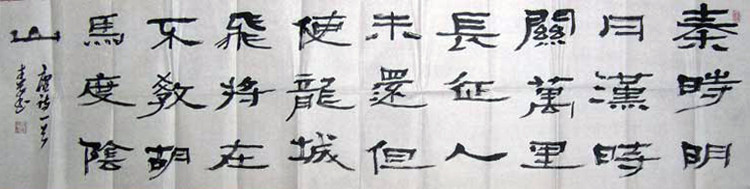 秦時明
月漢時
關萬里
長征人
未還但
使龍城
飛將在
不教胡
馬度陰
山
唐詩一首